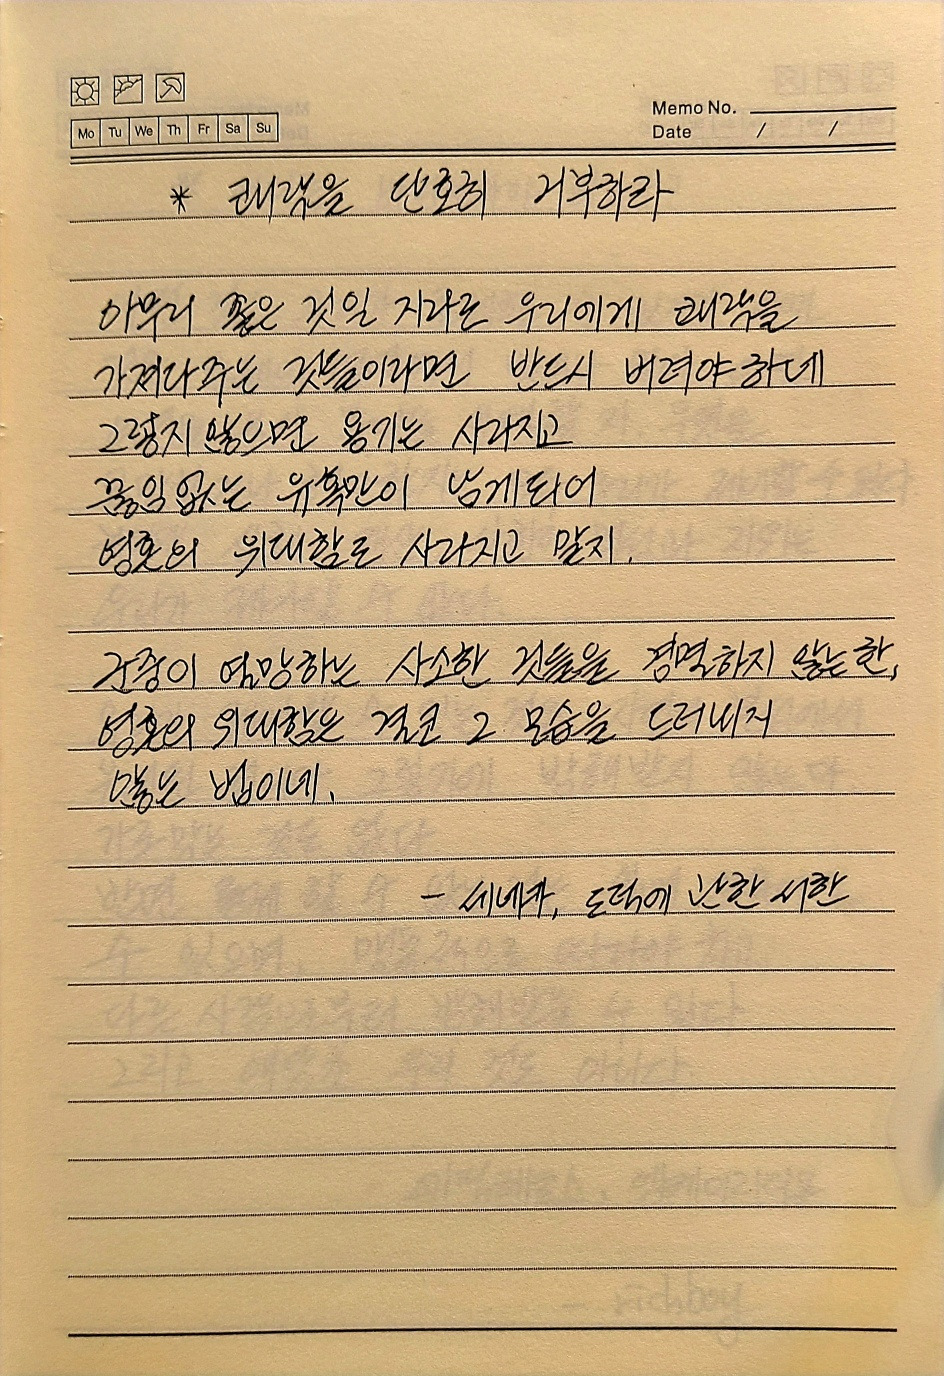 Memo No.
Mo Tu We Th Fr Sa Su
Date / /
* 쾌락을 단호히 거부하라
아무리 좋은 것일 지라도 우리에게 쾌락을
가져다주는 것들이라면 반드시 버려야하네
그렇지 않으면 용기는 사라지고
끊임없는 유혹만이 남게되어
영혼의 위대함도 사라지고 말지.
군중이 열망하는 사소한 것들을 경멸하지 않는 한,
영혼의 위대함은 결코 그 모습을 드러내지
않는 법이네.
- 세네카, 도덕에 관한 서한